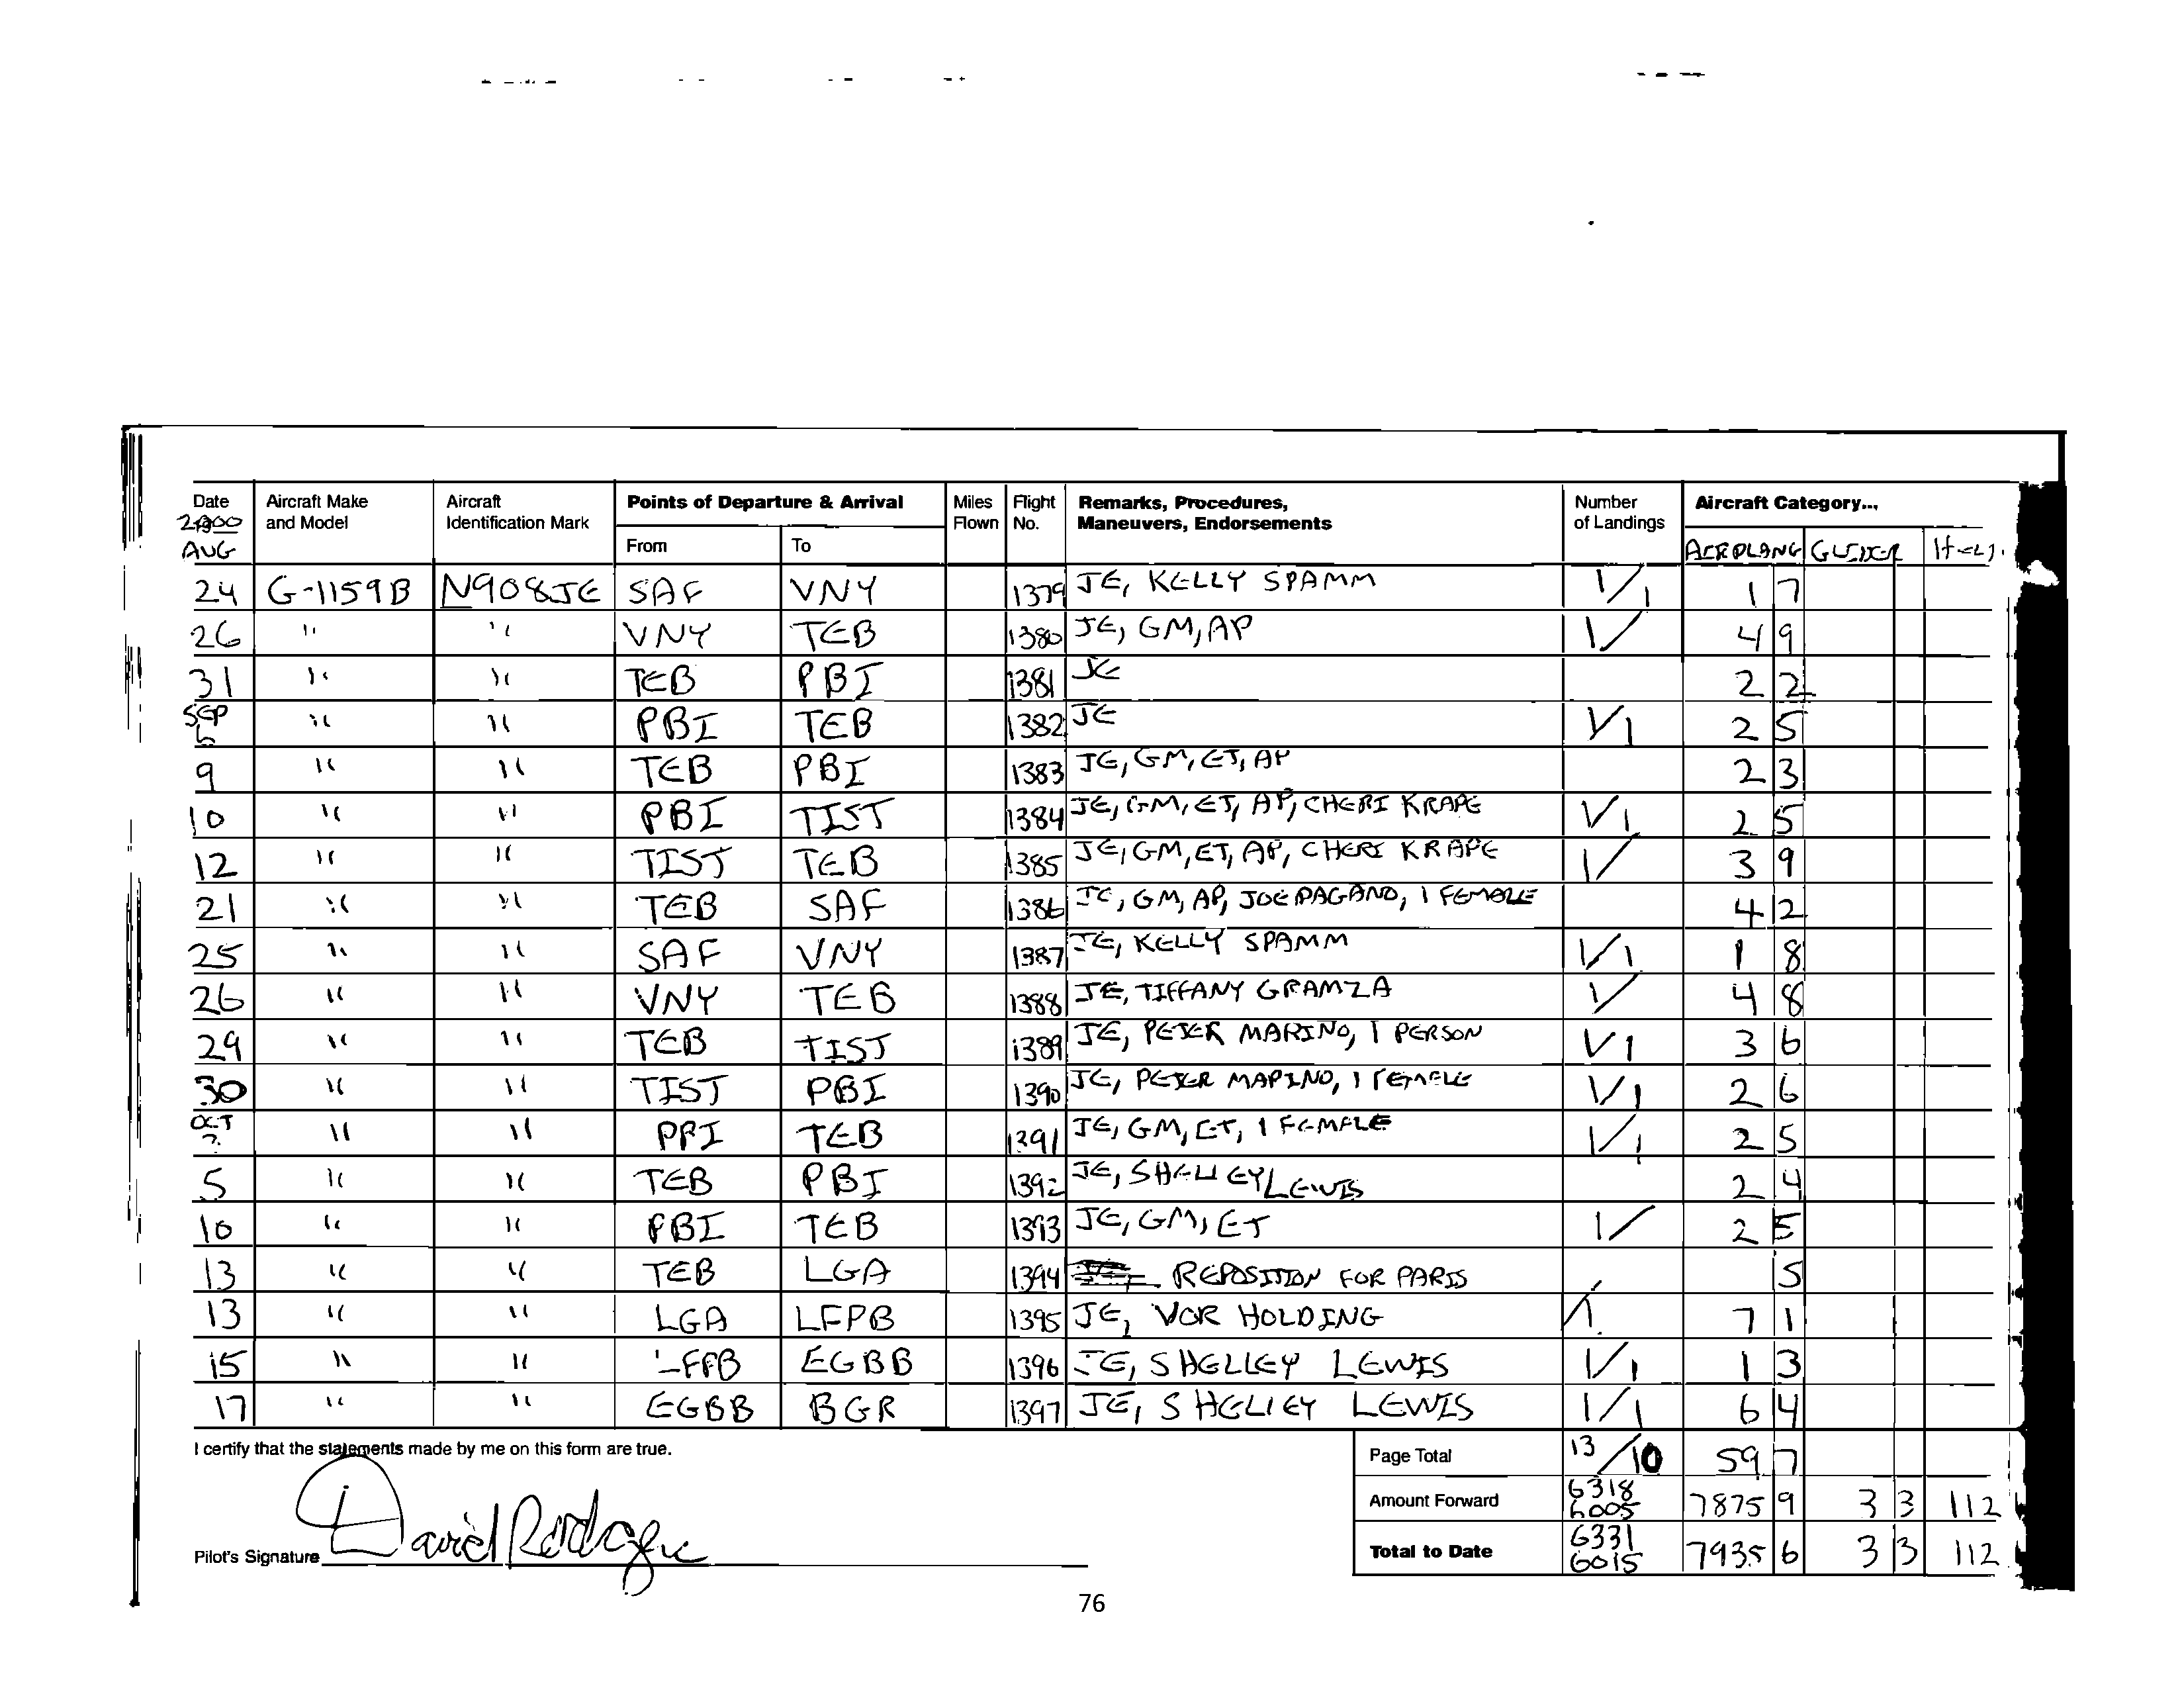 Date Aircraft Make Aircraft Points of Departure & Arrival Miles Flight Remarks, Procedures, Number Aircraft Category...
2000 and Model Identification Mark Flown No. Maneuvers, Endorsements of Landings
AUG From To AEROPLANE GLIDER HELI
24 G-1159B N908JE SAF VNY 1379 JE, KELLY SPAMM 1/1 1 7
26 " " VNY TEB 1380 JE, GM, AP 1/ 4 9
31 " " TEB PBI 1381 JE 2 2
SEP 6 " " PBI TEB 1382 JE 1/1 2 5
9 " " TEB PBI 1383 JE, GM, ET, AP 2 3
10 " " PBI TIST 1384 JE, GM, ET, AP, CHERI KRAPE 1/1 2 5
12 " " TIST TEB 1385 JE, GM, ET, AP, CHERI KRAPE 1/ 3 9
21 " " TEB SAF 1386 JE, GM, AP, JOE PAGANO, 1 FEMALE 4 2
25 " " SAF VNY 1387 JE, KELLY SPAMM 1/1 1 8
26 " " VNY TEB 1388 JE, TIFFANY GRAMZA 1/ 4 8
29 " " TEB TIST 1389 JE, PETER MARINO, 1 PERSON 1/1 3 6
30 " " TIST PBI 1390 JE, PETER MARINO, 1 FEMALE 1/1 2 6
OCT " " PBI TEB 1391 JE, GM, ET, 1 FEMALE 1/1 2 5
5 " " TEB PBI 1392 JE, SHELLEY LEWIS 2 4
10 " " PBI TEB 1393 JE, GM, ET 1/ 2 5
13 " " TEB LGA 1394 REPOSITION FOR PARIS 5
13 " " LGA LFPB 1395 JE, VOR HOLDING 1/ 7 1
15 " " LFPB EGBB 1396 JE, SHELLEY LEWIS 1/1 1 3
17 " " EGBB BGR 1397 JE, SHELLEY LEWIS 1/1 6 4
I certify that the statements made by me on this form are true. Page Total 13/10 59 7
Amount Forward 6318 6005 7875 9 3 3 112
Pilot's Signature David Rodgers Total to Date 6331 6015 7935 6 3 3 112
76